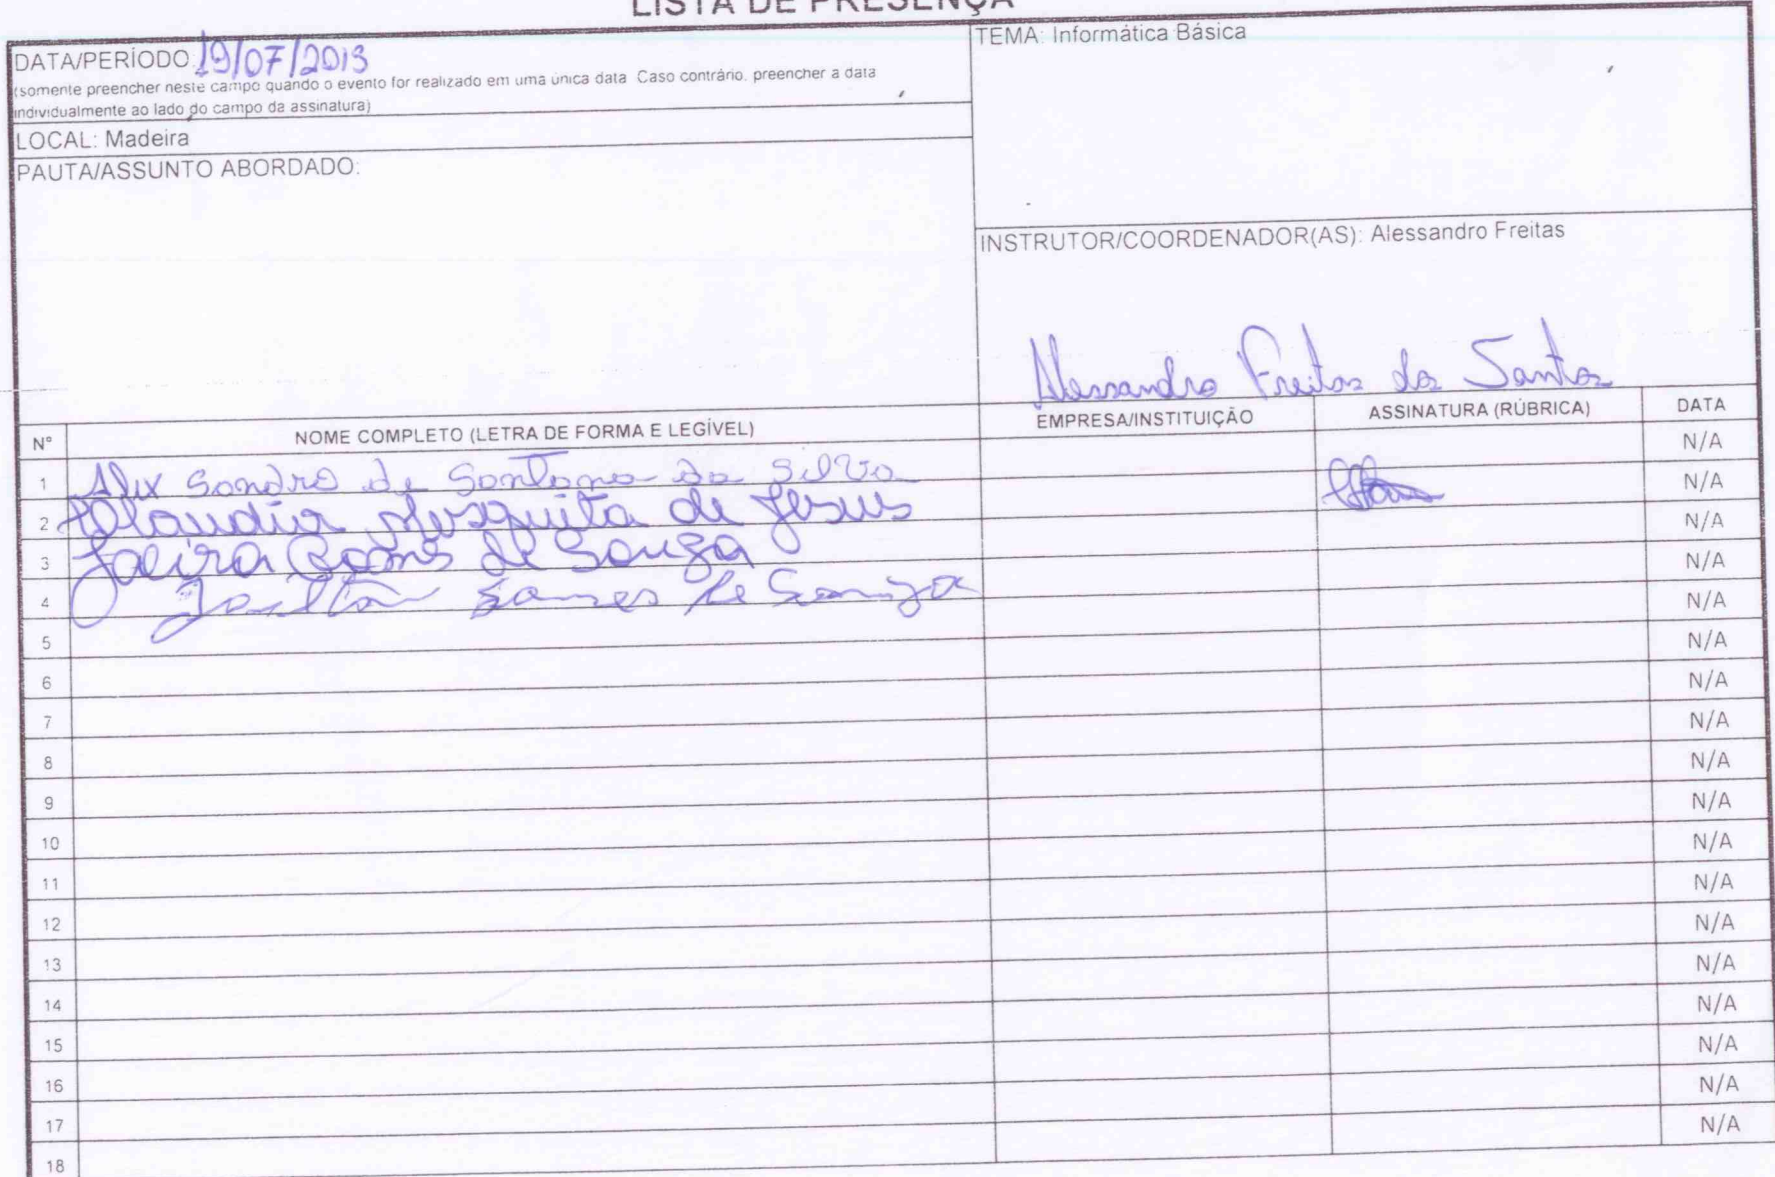 LISTA DE PRESENÇA
DATA/PERÍODO: 19/07/2013
(somente preencher neste campo quando o evento for realizado em uma única data. Caso contrário, preencher a data
individualmente ao lado do campo da assinatura)
TEMA: Informática Básica
LOCAL: Madeira
PAUTA/ASSUNTO ABORDADO:
INSTRUTOR/COORDENADOR(AS): Alessandro Freitas
Alessandro Freitas dos Santos
N° NOME COMPLETO (LETRA DE FORMA E LEGÍVEL) EMPRESA/INSTITUIÇÃO ASSINATURA (RÚBRICA) DATA
1 Alex Sandro de Santana da Silva N/A
2 Claudia Mesquita de Jesus N/A
3 Jacira Gomes de Souza N/A
4 Gomes de Souza N/A
5 N/A
6 N/A
7 N/A
8 N/A
9 N/A
10 N/A
11 N/A
12 N/A
13 N/A
14 N/A
15 N/A
16 N/A
17 N/A
18 N/A